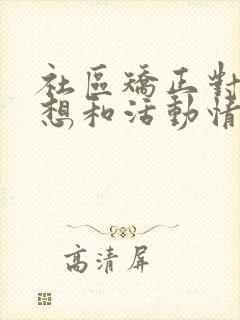 社區矯正對
想和活動情
高清屏